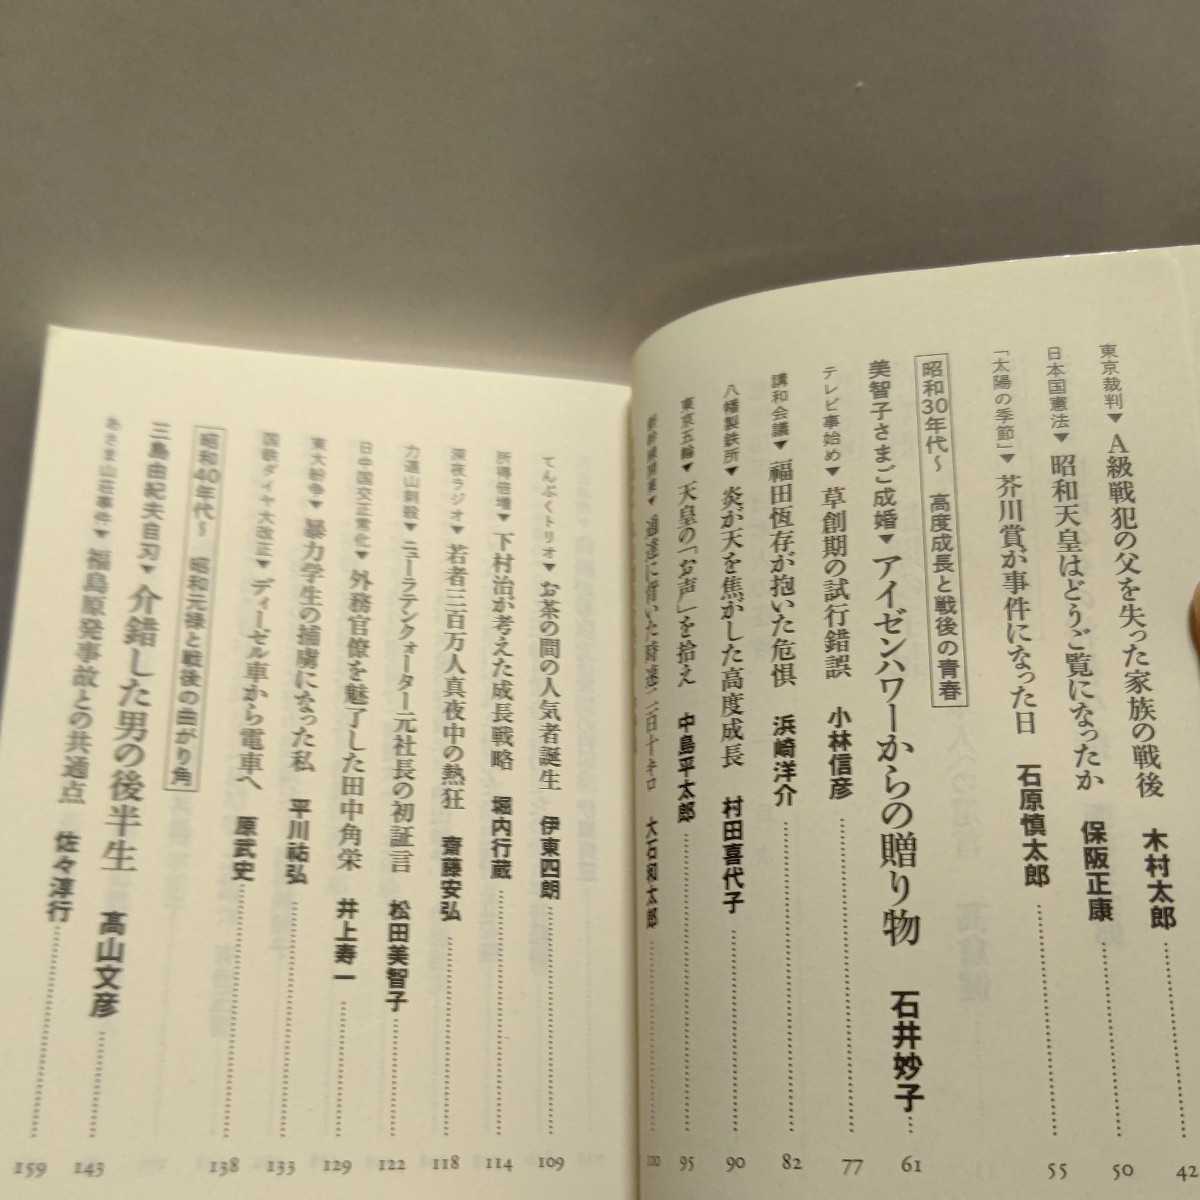 東京裁判▼A級戦犯の父を失った家族の戦後 木村太郎 42
日本国憲法▼昭和天皇はどうご覧になったか 保阪正康 50
「太陽の季節」▼芥川賞が事件になった日 石原慎太郎 55
昭和30年代〜 高度成長と戦後の青春
美智子さまご成婚▼アイゼンハワーからの贈り物 石井妙子 61
テレビ事始め▼草創期の試行錯誤 小林信彦 77
講和会議▼福田恆存が抱いた危惧 浜崎洋介 82
八幡製鉄所▼炎が天を焦がした高度成長 村田喜代子 90
東京五輪▼天皇の「お声」を拾え 中島平太郎 95
新幹線開業▼ 時速二百十キロ 大石和太郎 100
てんぷくトリオ▼お茶の間の人気者誕生 伊東四朗 109
所得倍増▼下村治が考えた成長戦略 堀内行蔵 114
深夜ラジオ▼若者三百万人真夜中の熱狂 齋藤安弘 118
力道山刺殺▼ニューラテンクォーター元社長の初証言 松田美智子 122
日中国交正常化▼外務官僚を魅了した田中角栄 井上寿一 129
東大紛争▼暴力学生の捕虜になった私 平川祐弘 133
国鉄ダイヤ大改正▼ディーゼル車から電車へ 原武史 138
昭和40年代〜 昭和元禄と戦後の曲がり角
三島由紀夫自刃▼介錯した男の後半生 髙山文彦 143
あさま山荘事件▼福島原発事故との共通点 佐々淳行 159